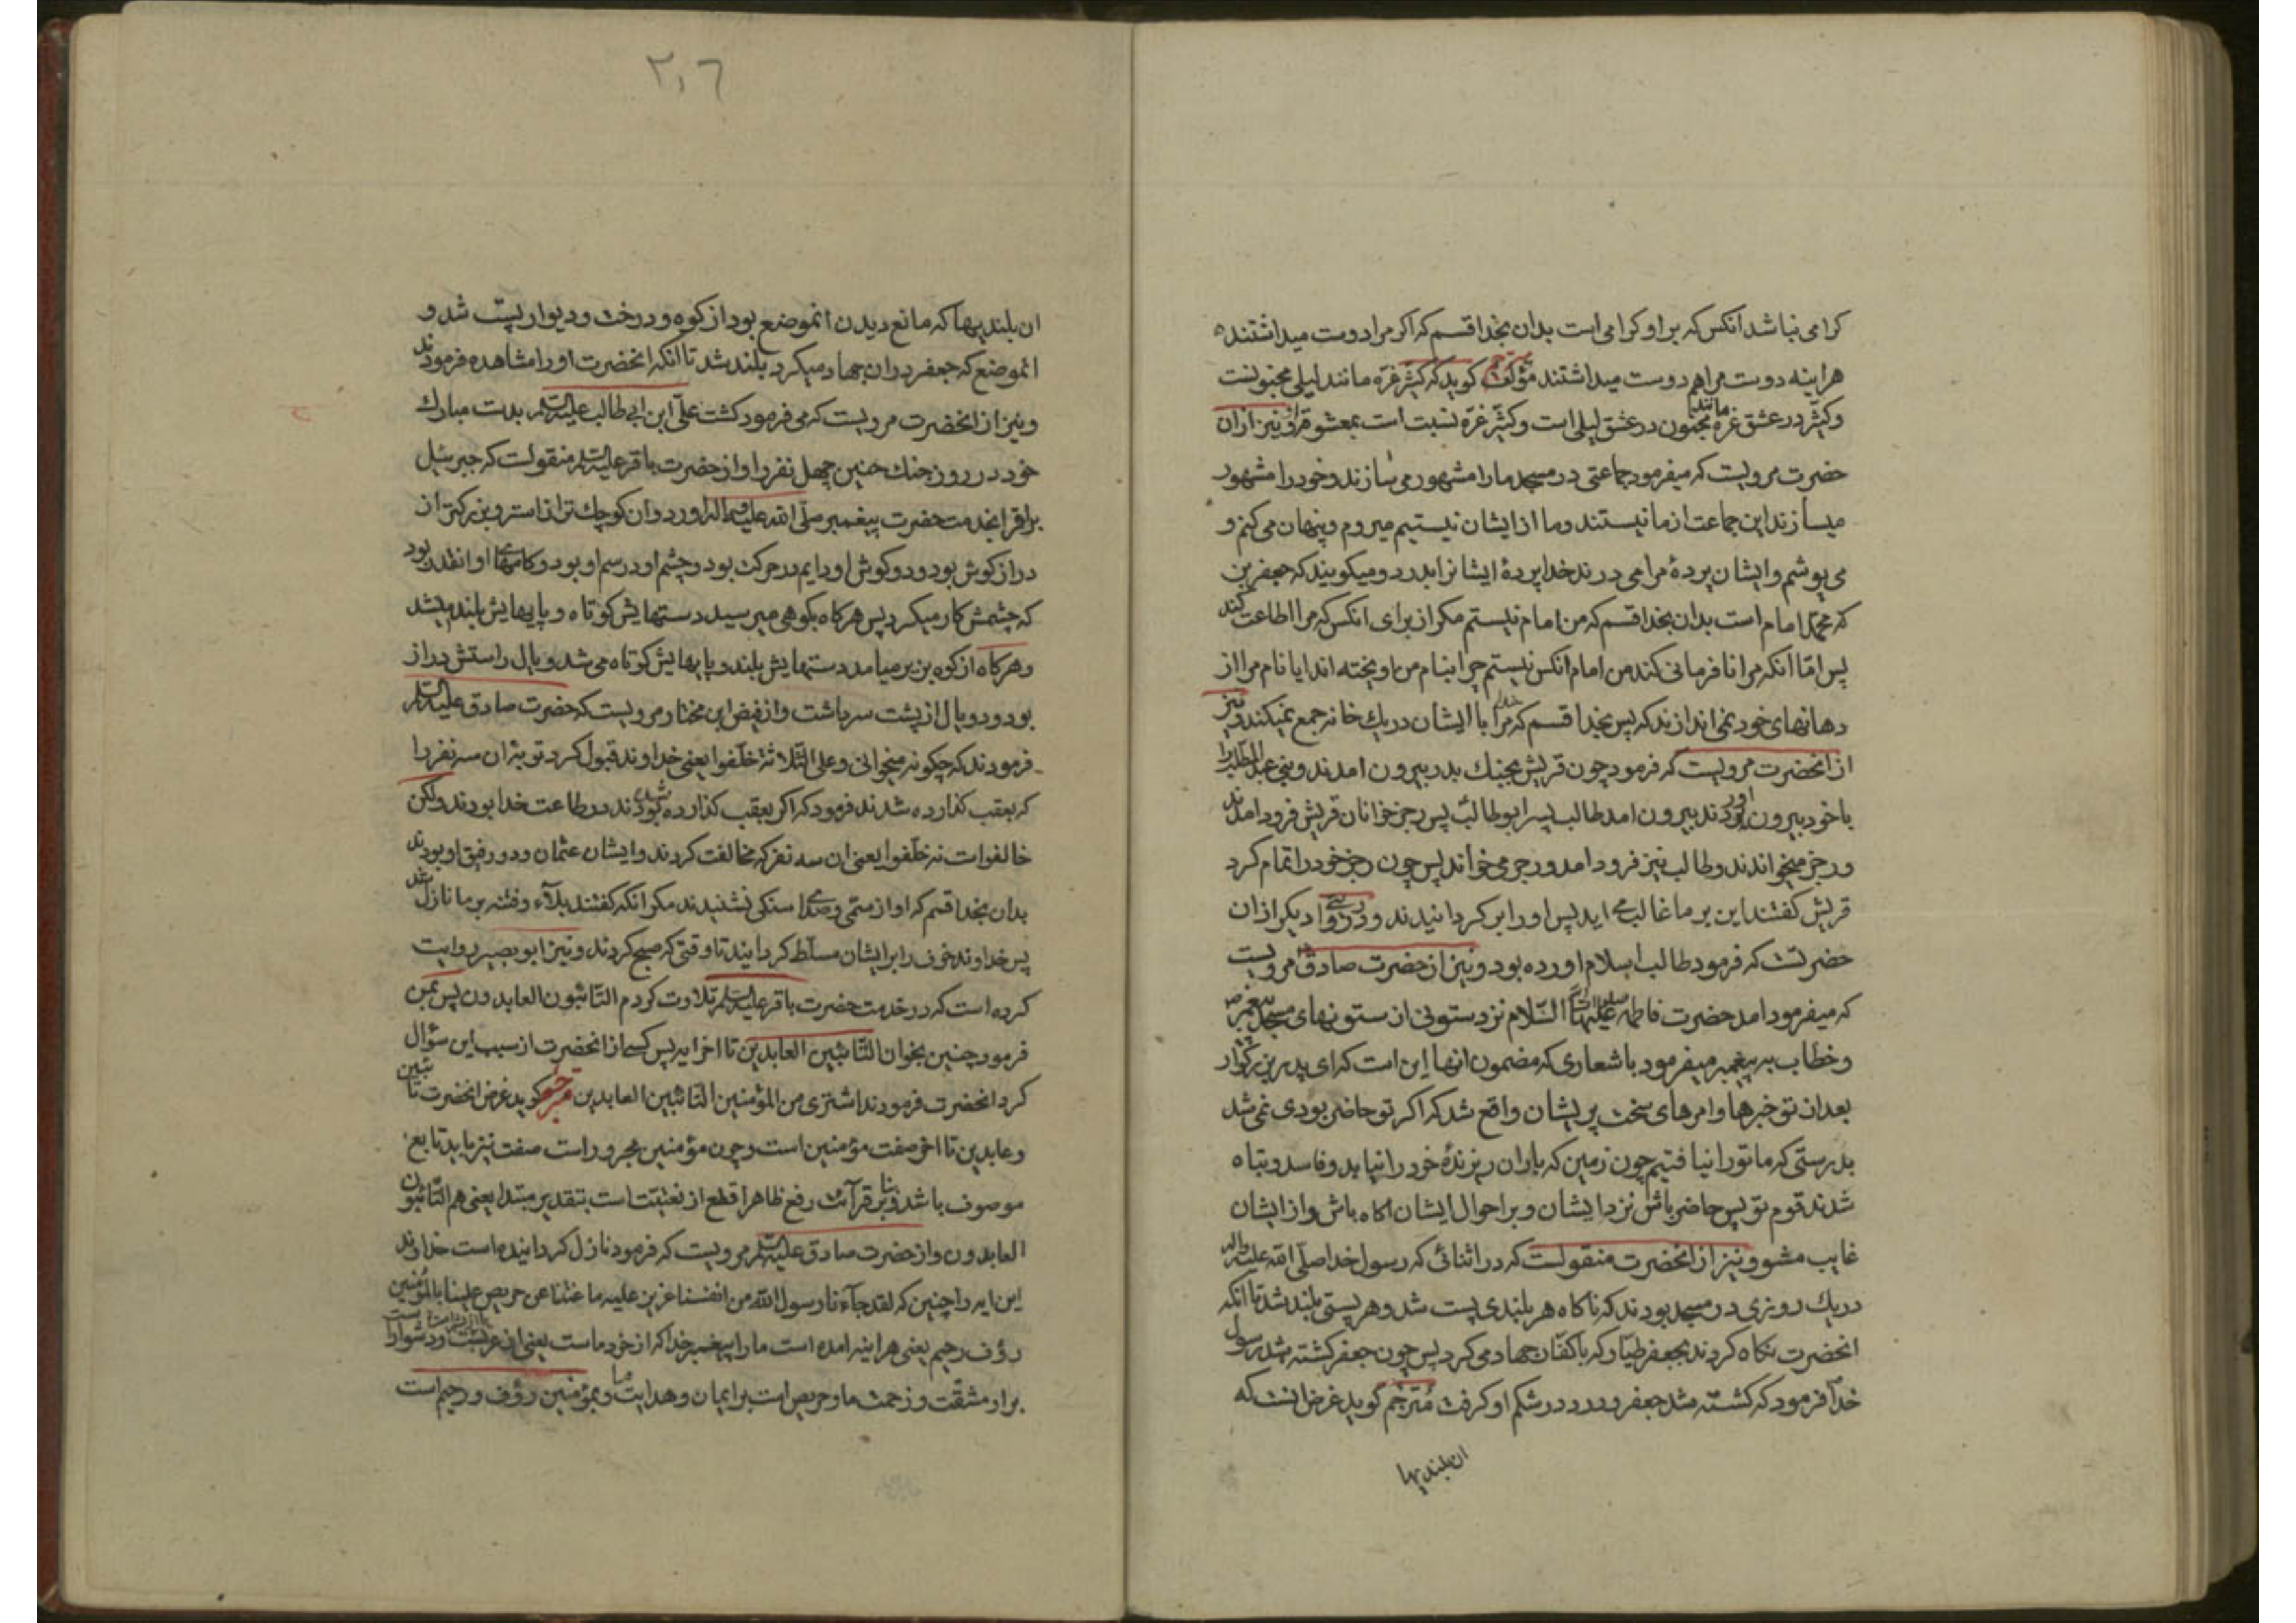 كرامی نباشد انكس كه بر او كرامی است بدان بخدا قسم كه اكر مرا دوست میداشتند
هراینه دوست مرا هم دوست میداشتند مترجم كوید كه كثیّر غرّه مانند لیلی مجنونست
و كثیّر در عشق غرّه مانند مجنون در عشق لیلی است و كثیّر غرّه نسبت است بمعشوقه او و نیز از ان
حضرت مرویست كه میفرمود جماعتی در مسجد ما را مشهور می سازند و خود را مشهور
میسازند این جماعت از ما نیستند و ما از ایشان نیستیم میروم و پنهان می كنم و
می پوشم و ایشان پردهٔ مرا می درند خدا پردهٔ ایشانرا بدرد و میكویند كه جعفر بن
كه محمّد امام است بدان بخدا قسم كه من امام نیستم مكر از برای انكس كه مرا اطاعت كند
پس امّا انكه مرا نافرمانی كند من امام انكس نیستم چرا بنام من اویخته اند ایا نام مرا از
دهانهای خود نمی اندازند كه پس بخدا قسم كه خدا مرا با ایشان در یك خانه جمع نمیكند و نیز
از انحضرت مرویست كه فرمود چون قریش بجنك بدر بیرون امدند و بنی عبدالمطلب را
با خود بیرون اوردند بیرون امد طالب پسر ابوطالب پس رجز خوانان قریش فرود امدند
و رجز میخواندند و طالب نیز فرود امد و رجز می خواند پس چون رجز خود را تمام كرد
قریش كفتند این بر ما غالب می اید پس او را بركردانیدند و در روایتی دیكر از ان
حضرتست كه فرمود طالب اسلام اورده بود و نیز از حضرت صادق مرویست
كه میفرمود امد حضرت فاطمه علیها السّلام نزد ستونی از ستونهای مسجد پیغمبر
و خطاب به پیغمبر میفرمود باشعاری كه مضمون انها این است كه ای پدر بزركوار
بعد از تو خبرها و امرهای سخت پریشان واقع شد كه اكر تو حاضر بودی نمی شد
بدرستی كه ما تو را نیافتیم چون زمین كه باران ریزندهٔ خود را نیابد و فاسد و تباه
شدند قوم تو پس حاضر باش نزد ایشان و بر احوال ایشان اكاه باش و از ایشان
غایب مشو و نیز از انحضرت منقولست كه در اثنائی كه رسول خدا صلّی الله علیه واله
در یك روزی در مسجد بودند كه ناكاه هر بلندی پست شد و هر پستی بلند شد تا انكه
انحضرت نكاه كردند بجعفر طیّار كه با كفّار جهاد می كرد پس چون جعفر كشته شد رسول
خدا فرمود كه كشته شد جعفر و درد در شكم او كرفت مترجم كوید غرض انست كه
ان بلندیها
۲۰۶
ان بلندیها كه مانع دیدن انموضع بود از كوه و درخت و دیوار پست شد و
انموضع كه جعفر در ان جهاد میكرد بلند شد تا انكه انحضرت او را مشاهده فرمودند
و نیز از انحضرت مرویست كه می فرمود كشت علّی ابن ابی طالب علیه السلام بدست مبارك
خود در روز جنك حنین چهل نفر را و از حضرت باقر علیه السلام منقولست كه جبرئیل
براق را بخدمت حضرت پیغمبر صلّی الله علیه واله اورد و ان كوچك تر از استر و بزركتر از
دراز كوش بود و دو كوش او دایم در حركت بود و چشم او در سم او بود و كامهای او انقدر بود
كه چشمش كار میكرد پس هركاه بكوهی میرسید دستهایش كوتاه و پایهایش بلند میشد
و هركاه از كوه بزیر میامد دستهایش بلند و پایهایش كوتاه می شد و یال راستش دراز
بود و دو بال از پشت سر داشت و از فیض ابن مختار مرویست كه حضرت صادق علیه السلام
فرمودند كه چكونه میخوانی وعلی الثّلاثة خلّفوا یعنی خداوند قبول كرد توبهٔ ان سه نفر را
كه بعقب كذارده شدند فرمود كه اكر بعقب كذارده شده بودند در طاعت خدا بودند ولكن
خالفوا است نه خلّفوا یعنی ان سه نفر كه مخالفت كردند و ایشان عثمان و دو رفیق او بودند
بدان بخدا قسم كه اواز سمّی و صدای سنكی نشنیدند مكر انكه كفتند بلاء و فتنه بر ما نازل شد
پس خداوند خوف را بر ایشان مسلّط كردانید تا وقتی كه صبح كردند و نیز ابو بصیر روایت
كرده است كه در خدمت حضرت باقر علیه السلام تلاوت كردم التّائبون العابدون پس بمن
فرمود چنین بخوان التّائبین العابدین تا اخر ایه پس كسی از انحضرت از سبب این سؤال
كرد انحضرت فرمودند اشتری من المؤمنین التائبین العابدین مترجم كوید غرض انحضرت تائبین
و عابدین تا اخر صفت مؤمنین است و چون مؤمنین مجرور است صفت نیز باید تابع
موصوف باشد و بنا بر قرآئت رفع ظاهرا قطع از نعتیّت است بتقدیر مبتدا یعنی هم التّائبون
العابدون و از حضرت صادق علیه السلام مرویست كه فرمود نازل كردانیده است خداوند
این ایه را چنین كه لقد جآءنا رسول الله من انفسنا عزیز علیه ما عنتنا حریص علینا بالمؤمنین
رؤف رحیم یعنی هراینه امده است ما را پیغمبر خدا كه از خود ماست یعنی از عربست و دشوار است
بر او مشقّت و زحمت ما و حریص است بر ایمان و هدایت ما و بمؤمنین رؤف و رحیم است